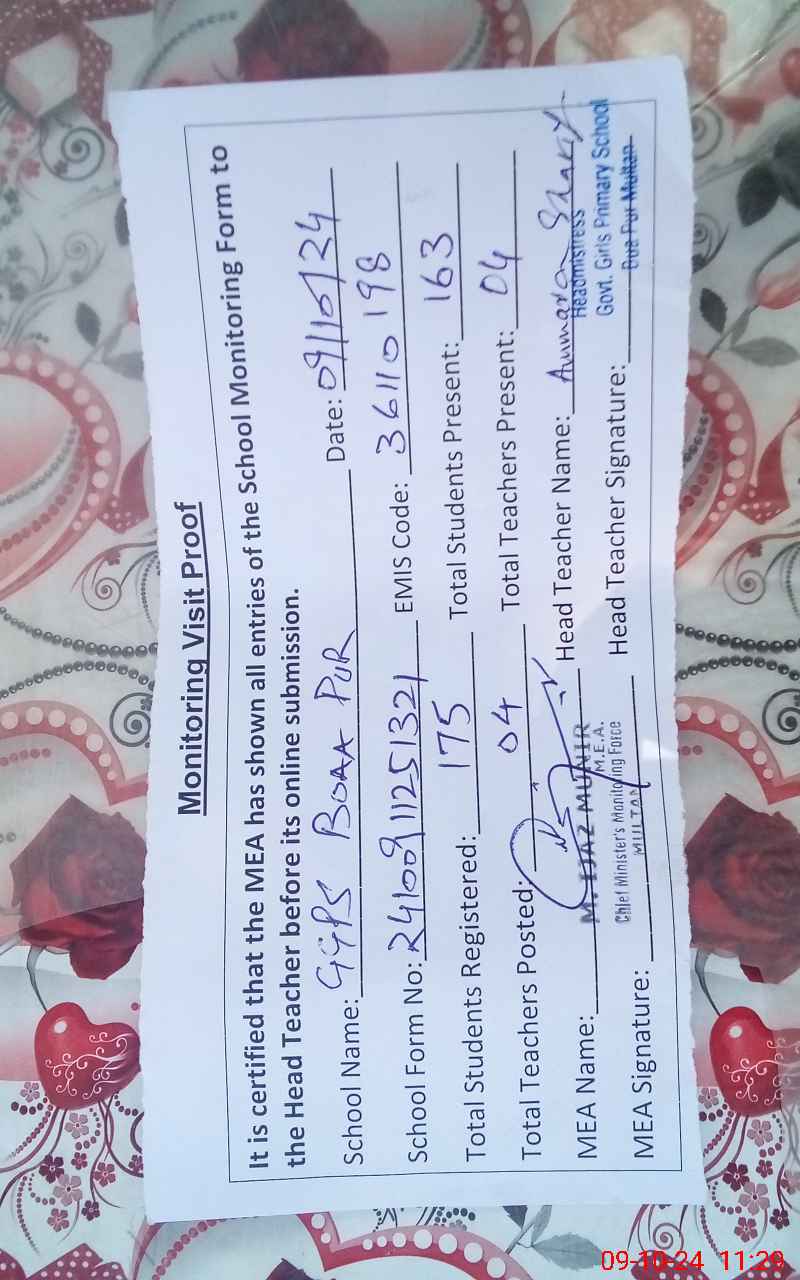 Monitoring Visit Proof
It is certified that the MEA has shown all entries of the School Monitoring Form to
the Head Teacher before its online submission.
School Name: GGPS BOAA PUR Date: 09/10/24
School Form No: 24100911251321 EMIS Code: 36110198
Total Students Registered: 175 Total Students Present: 163
Total Teachers Posted: 04 Total Teachers Present: 04
MEA Name: Head Teacher Name:
M. IJAZ MUNIR
M.E.A.
Chief Minister's Monitoring Force
MULTAN
Headmistress
Govt. Girls Primary School
Bua Pur Multan
MEA Signature: Head Teacher Signature:
09-10-24 11:29